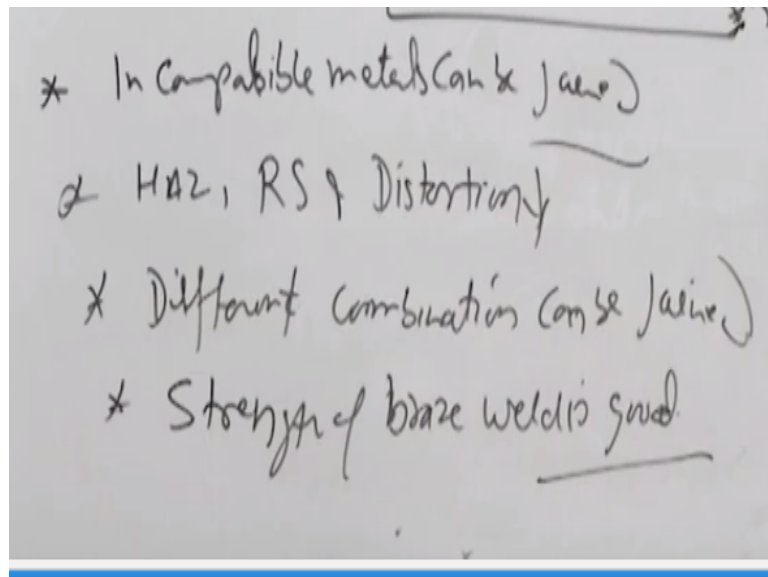 * Incompabible metals can be joined
* HAZ, RS & Distortion ↓
* Different combination can be joined
* Strength of braze weld is good